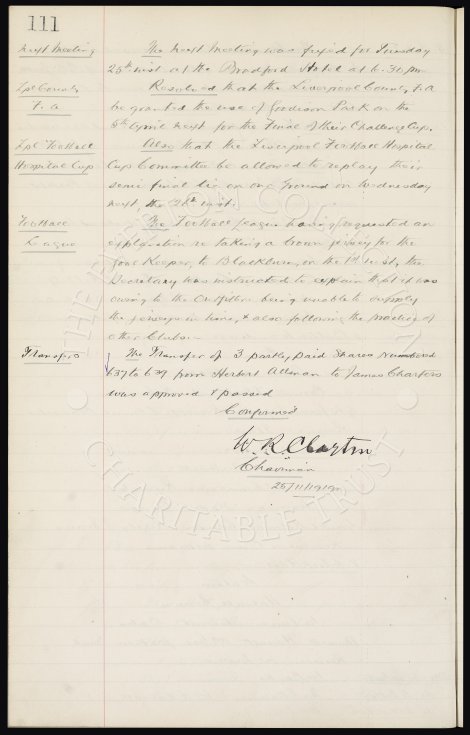 111
Next Meeting
The Next Meeting was fixed for Tuesday
25th inst at the Bradford Hotel at 6-30pm
Lpl County
F.A
Resolved that the Liverpool County F.A
be granted the use of Goodison Park on the
5th April next for the Final of their Challenge Cup.
Lpl Football
Hospital Cup
Also that the Liverpool Football Hospital
Cup Committee be allowed to replay their
semi final tie on our Ground on Wednesday
next the 26th inst.
Football
League
The Football League having requested an
explanation re taking a brown jersey for the
Goal Keeper, to Blackburn, on the 1st inst, the
Secretary was instructed to explain that it was
owing to the Outfitters being unable to supply
the jerseys in time, & also following the practice of
other Clubs.
Transfers
The Transfer of 3 partly paid Shares numbered
637 to 639 from Herbert to James Charters
was approved & passed
Confirmed
W.R. Clayton
Chairman
25/11/1919
THE EVERTON COLLECTION
CHARITABLE TRUST